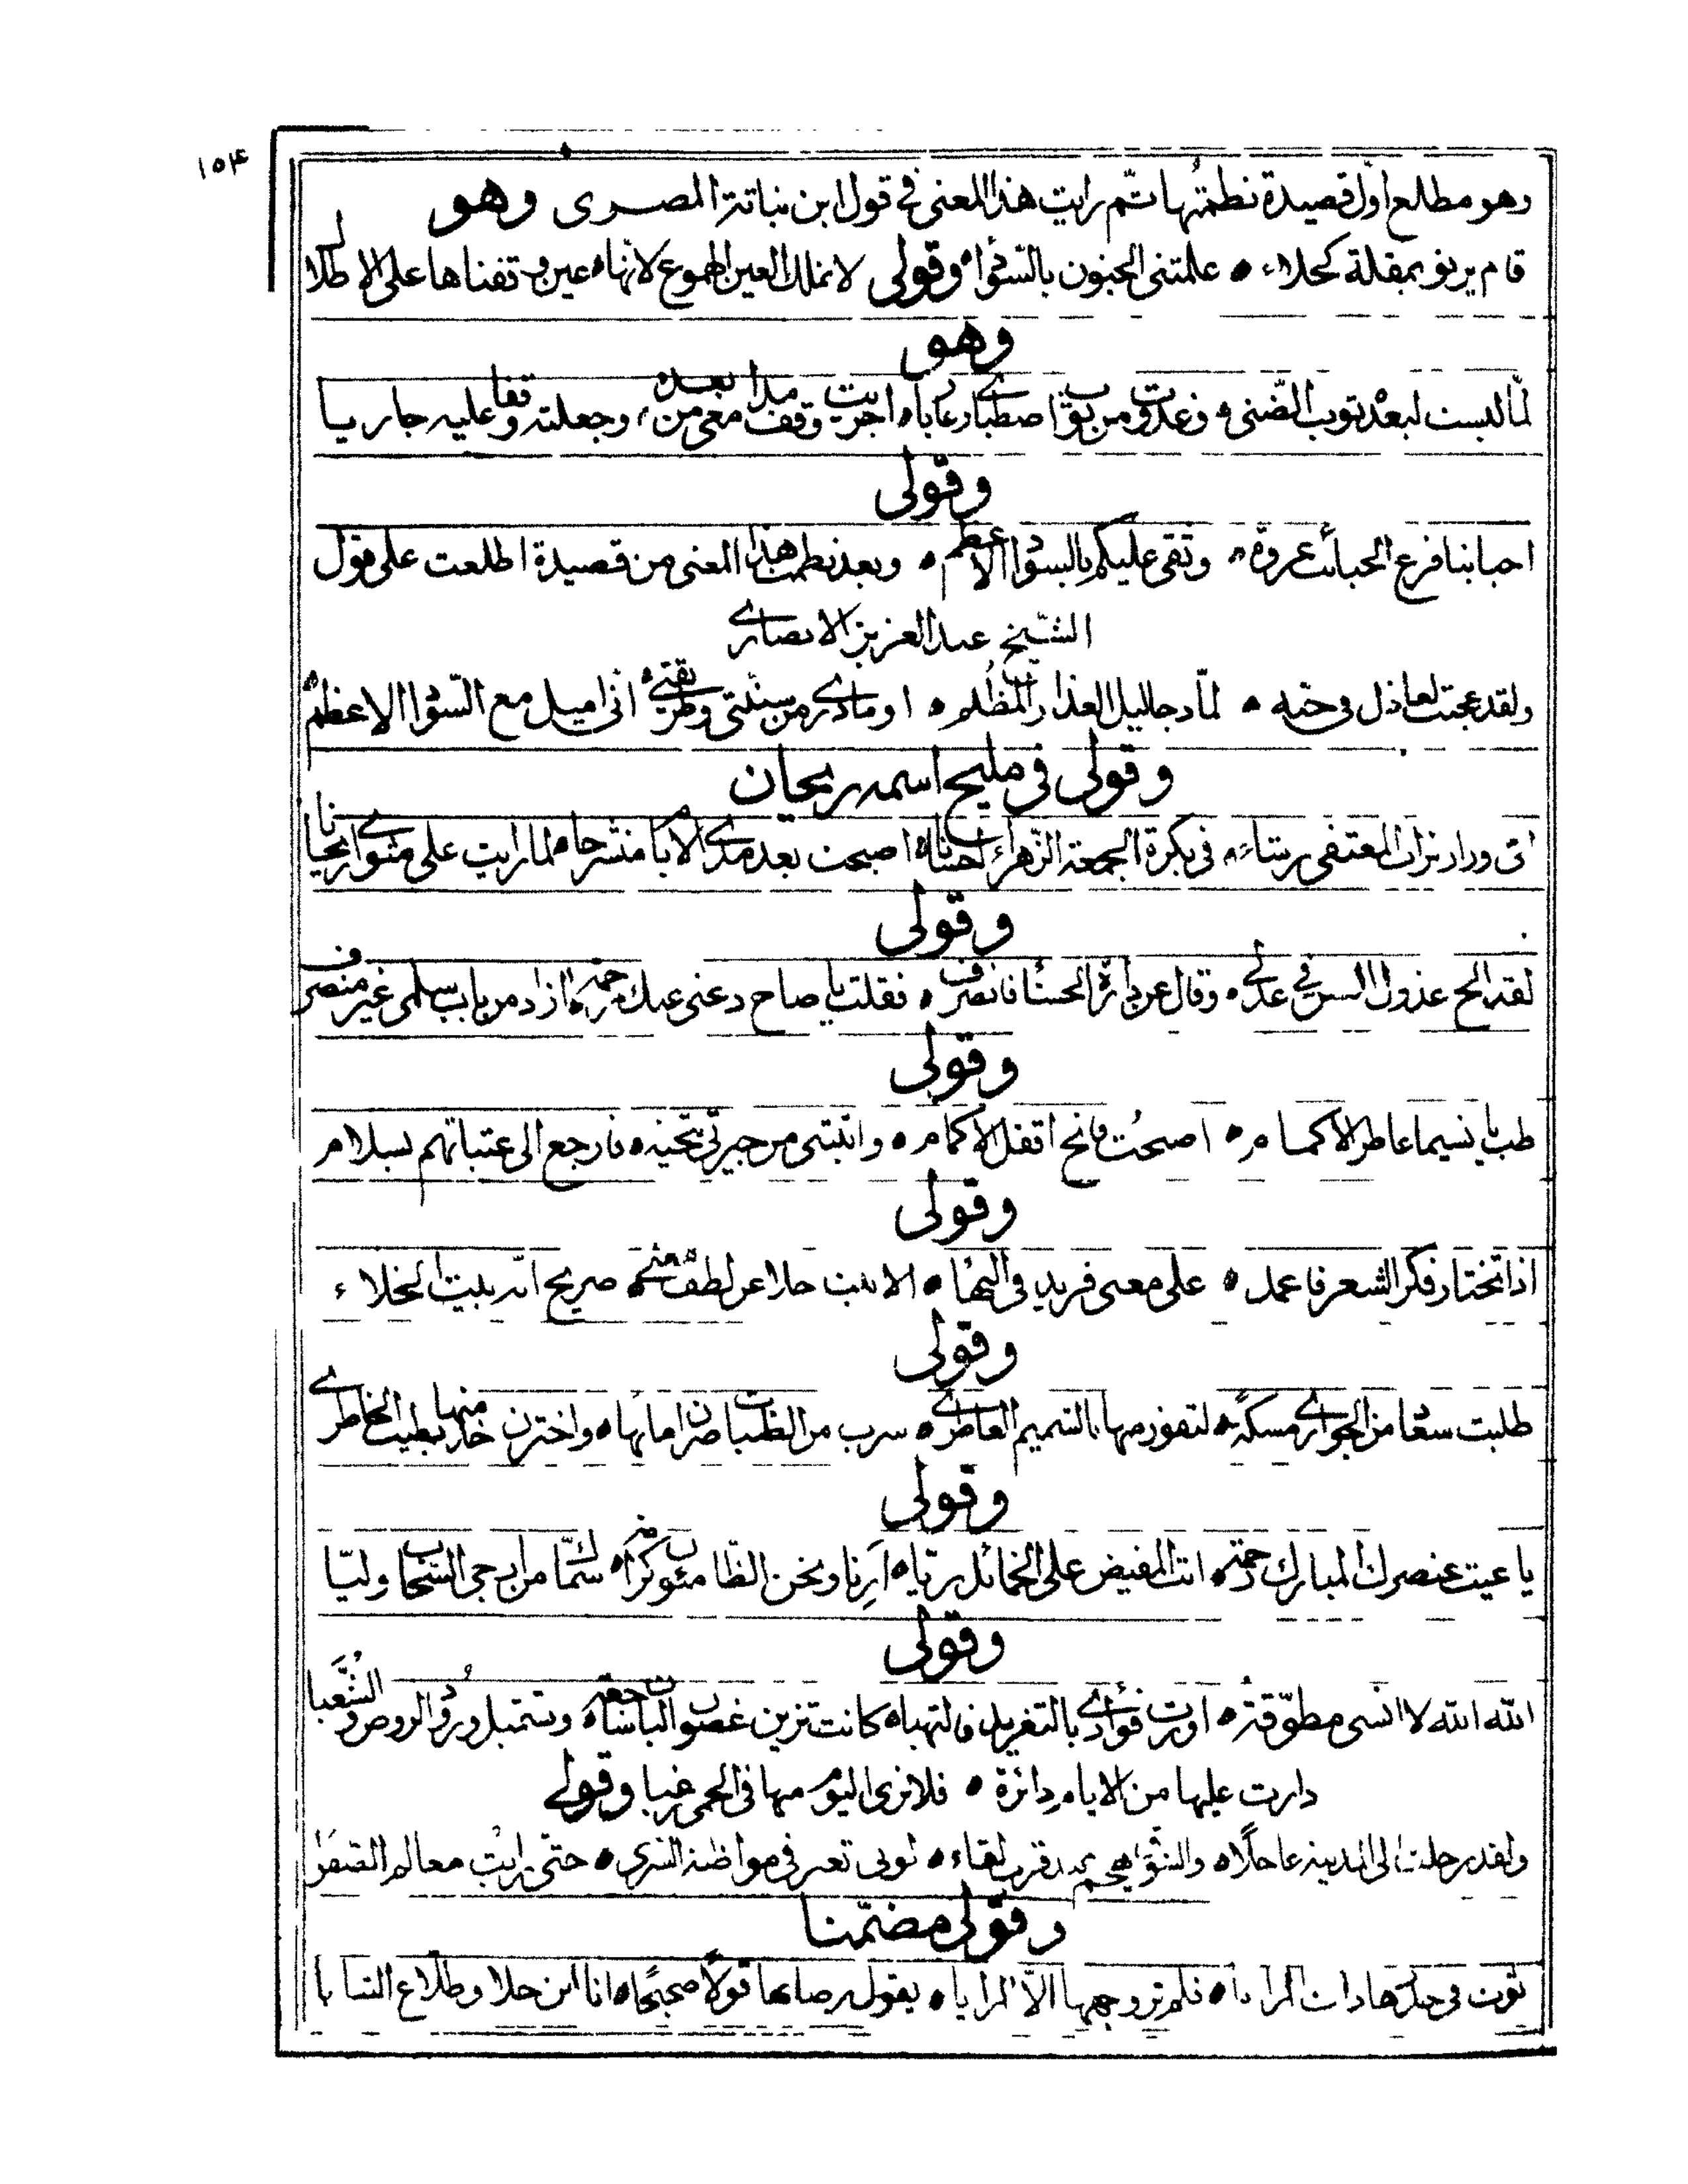 ١٥٤
وهو مطلع اول قصيدة نظمتها ثم رايت هذا المعنى فى قول ابن نباتة المصرى وهو
قام يرنو بمقلة كحلاء ه علمتنى الجنون بالسودا ه وقولى لا تملك العين الهموع لانها ه عين وقفناها على الاطلال
وهو
لما لبست لبعده ثوب الضنى ه وغدوت من ثوب اصطبارى عاريا ه اجريت وقف مدامعى من بعده ، وجعلته وقفا عليه جاريا
وقولى
احبابنا فرع الحبائب عروة ه وتقى عليكم بالسواد الاعظم ه وبعد نظمت هذا المعنى من قصيدة اطلعت على قول
الشيخ عبد العزيز الانصارى
ولقد عجبت لعاذل فى حبه ه لما دجا ليل العذار المظلم ه او ما درى من سنتى وطريقتى ه انى اميل مع السواد الاعظم
وقولى فى مليح اسمه ريحان
فى بكرة الجمعة الزهراء احسانا ه اصبحت بعد مدى الايام منشرحا ه لما رايت على مثواى ريحانا
وقولى
لقد الح عذول السر فى عذلى ه وقال عن دارة الحسنا فانصرف ه فقلت يا صاح دعنى عنك ازاد من باب سلمى غير منصرف
وقولى
طب يا نسيما عاطر الاكمام ه اصبحت فاتح اقفل الاكمام ه واتيتنى من جيرتى بتحية ه فارجع الى عتباتهم بسلام
وقولى
اذا تختار فكر الشعر فاعمد ه على معنى فريد فى البهاء ه صريح انه بيت الخلاء
وقولى
طلبت سعدا من الجوارى مسكة ه لتفوز منها بالشميم العاطرى ه سرب من الظبيات صن امانها ه واخترن منها بطيب الخاطرى
وقولى
يا غيث عنصرك المبارك رحمة ه انت المفيض على الخمائل ريا ه ارنا ونحن الظامئون كرامة ه سماك من ازجى السحاب وليا
وقولى
الله الله لا انسى مطوقة ه اورت فؤادى بالتغريد فالتهبا ه كانت تزين غصون البان ساجعة ه وتستميل ورود الروض والشعبا
دارت عليها من الايام دائرة ه فلا نرى اليوم منها فى الحمى زغبا وقولى
ولقد رحلت الى المدينة عاجلا ه والشوق قرب لقاء ه ثوبى تعر فى مواطئه السرى ه حتى رايت معالم الصفراء
وقولى مضمنا
فلم تر وجهها الا المرايا ه يقول رضابها قولا صحيحا ه انا ابن جلا وطلاع الثنايا